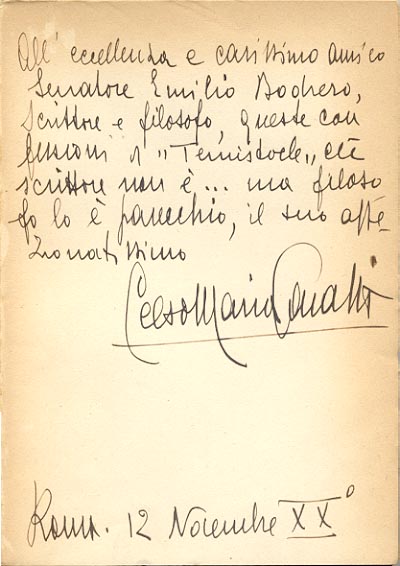 All'eccellenza e carissimo amico
Senatore Emilio Bodrero,
scrittore e filosofo, queste con
fessioni di "Temistocle" che
scrittore non è... ma filoso
fo lo è parecchio, il suo affe-
zionatissimo
Celso Maria Garatti
Roma. 12 Novembre XX°